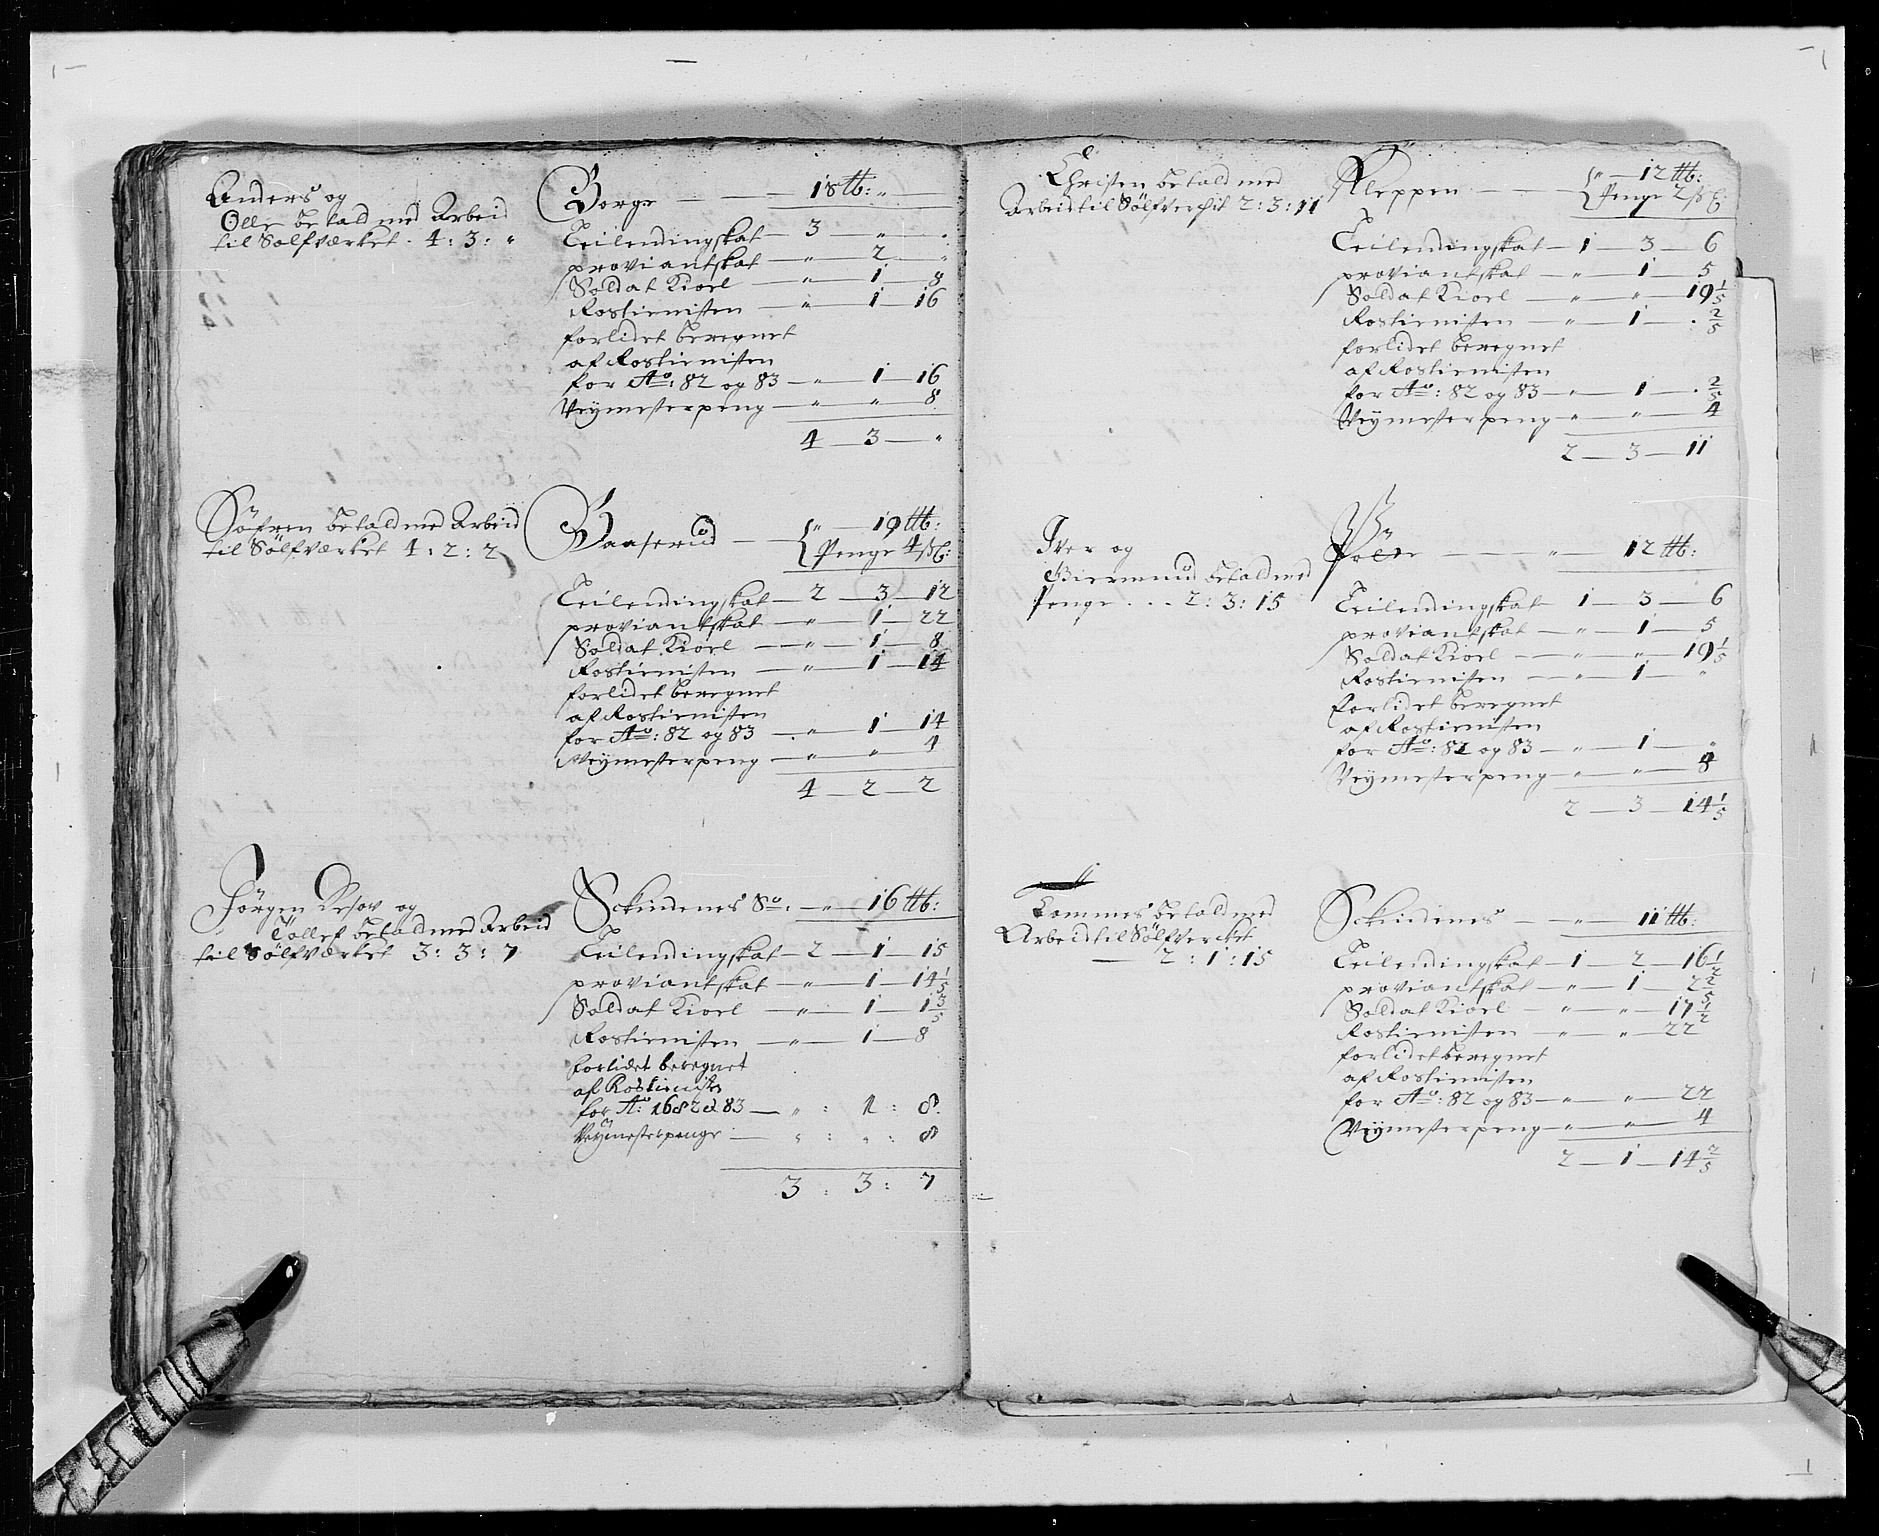 Anders og
Olle betald med Arbeid
til Sølfværket . 4 : 3 : "
Borge — 18 ℔: "
Leilendingskat — 3 — " — "
proviantskat — " — 2 — "
Soldat Kioel — " — 1 — 8
Rostienisten — " — 1 — 16
forlidet beregnet
af Rostienisten
for Aº: 82 og 83 — " — 1 — 16
Veymesterpeng — " — " — 8
4 — 3 — "
Søfren betald med Arbeid
til Sølfværket 4 : 2 : 2
Baaserud — { " — 19 ℔:
Penge 4 ß
Leilendingskat — 2 — 3 — 12
proviantskat — " — 1 — 22
Soldat Kioel — " — 1 — 8
Rostienisten — " — 1 — 14
forlidet beregnet
af Rostienisten
for Aº: 82 og 83 — " — 1 — 14
Veymesterpeng — " — " — 4
4 — 2 — 2
Jørgen og
Tollef betald med Arbeid
til Sølfværket 3 : 3 : 7
Sckindenes Sº: — " — 16 ℔:
Leilendingskat — 2 — 1 — 15
proviantskat — " — 1 — 14 1/5
Soldat Kioel — " — 1 — 1 3/5
Rostienisten — " — 1 — 8
forlidet beregnet
af Rostienist
for Aº: 1682 et 83 — " : 1 : 8
Veymesterpenge — " : " : 8
3 : 3 : 7
Christen betald med
Arbeid til Sølfverchit 2 : 3 : 11
Kleppen — { " — 12 ℔:
Penge 2 ß
Leilendingskat — 1 — 3 — 6
proviantskat — " — 1 — 5
Soldat Kioel — " — " — 19 1/5
Rostienisten — " — 1 — . 2/5
forlidet beregnet
af Rostienisten
for Aº: 82 og 83 — " — 1 — . 2/5
Veymesterpeng — " — " — 4
2 — 3 — 11
Iver og
Giermund betald med
Penge . . . 2 : 3 : 15
— " — 12 ℔:
Leilendingskat — 1 — 3 — 6
proviantskat — " — 1 — 5
Soldat Kioel — " — " — 19 1/5
Rostienisten — " — 1 — "
forlidet beregnet
af Rostienisten
for Aº: 82 og 83 — " — 1 — "
Veymesterpeng — " — " — 8
2 — 3 — 14 1/5
Tommes betald med
Arbeid til Sølfvercket
— 2 : 1 : 15
Sckindenes — " — 11 ℔:
Leilendingskat — 1 — 2 — 16 1/2
proviantskat — " — 1 — 2 2/5
Soldat Kioel — " — " — 17 1/2
Rostienisten — " — " — 22
forlidet beregnet
af Rostienisten
for Aº: 82 og 83 — " — " — 22
Veymesterpeng — " — " — 4
2 — 1 — 14 2/5